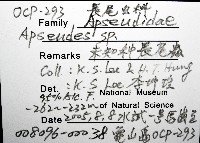 OCP-293 長尾虫科
Family Apseudidae
Apseudes sp.
Remarks 未知種長尾蟲
Coll: K.S. Lee & H.T. Hung
Det.: K.S. Lee 李坤瑄
National Museum
-262m-232m of Natural Science
Date 2005.8.8 水試一號
008096-00038 龜山島 OCP-293